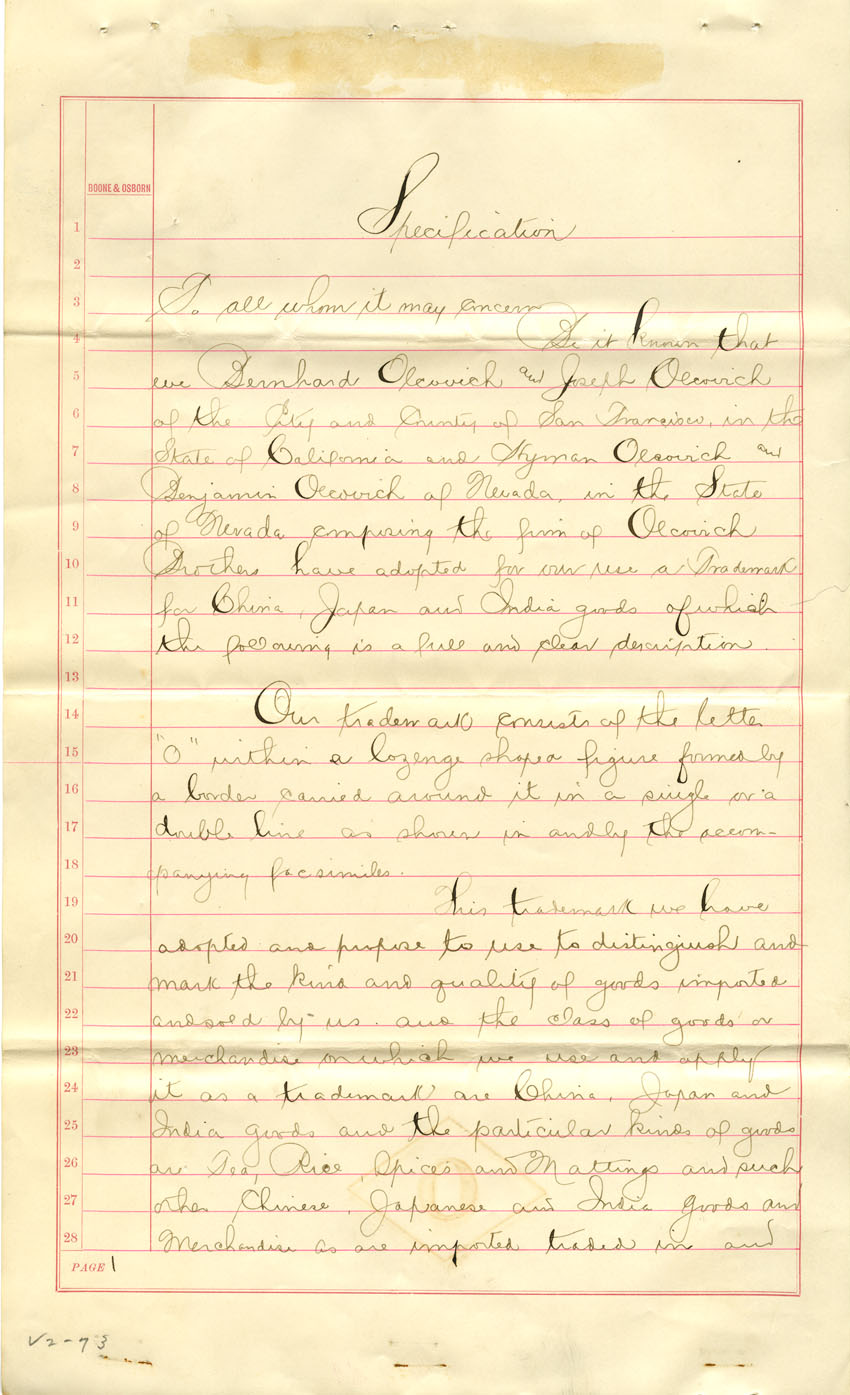 BOONE & OSBORN
1 Specification
2
3 To all whom it may concern
4 Be it known that
5 we Bernhard Olcovich and Joseph Olcovich
6 of the City and County of San Francisco, in the
7 State of California and Hyman Olcovich and
8 Benjamin Olcovich of Nevada, in the State
9 of Nevada composing the firm of Olcovich
10 Brothers have adopted for our use a Trademark
11 for China, Japan and India goods of which
12 the following is a full and clear description.
13
14 Our trademark consists of the letter
15 "O" within a lozenge shaped figure formed by
16 a border carried around it in a single or a
17 double line as shown in and by the accom-
18 panying facsimiles.
19 This trademark we have
20 adopted and propose to use to distinguish and
21 mark the kind and quality of goods imported
22 and sold by us. and the class of goods or
23 merchandise on which we use and apply
24 it as a trademark are China, Japan and
25 India goods and the particular kinds of goods
26 are Tea, Rice, Spices and Mattings and such
27 other Chinese, Japanese and India goods and
28 Merchandise as are imported traded in and
PAGE 1
V2-73